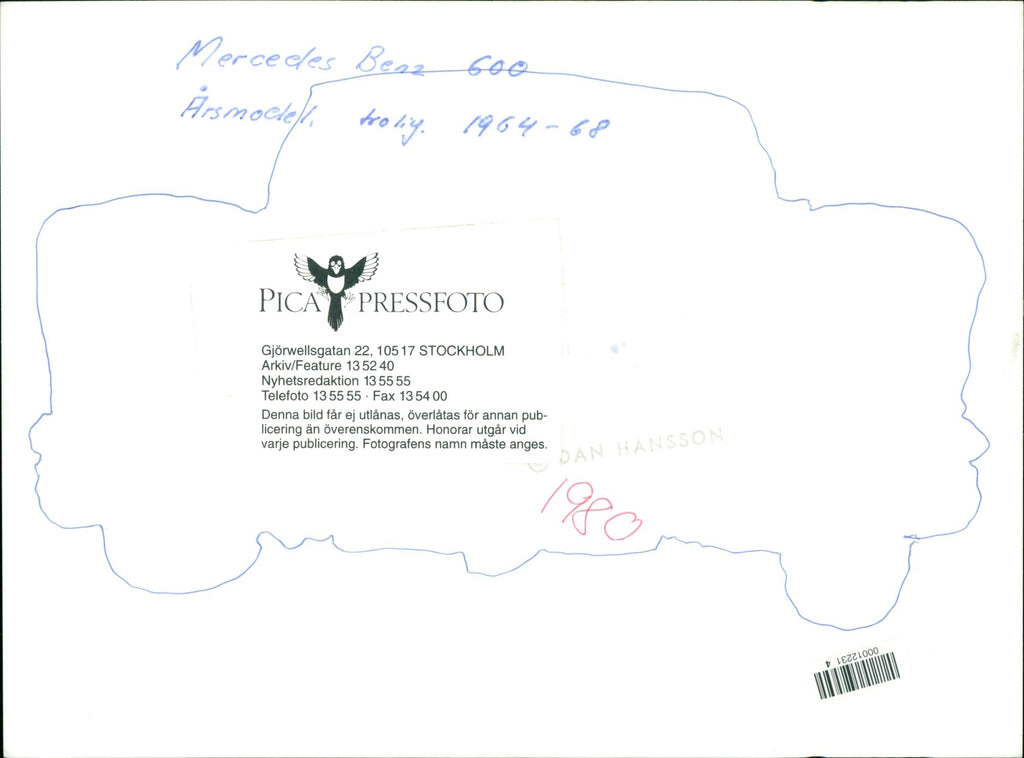 Mercedes Benz 600
Årsmodell. trolig. 1964-68
PICA PRESSFOTO
Gjörwellsgatan 22, 105 17 STOCKHOLM
Arkiv/Feature 13 52 40
Nyhetsredaktion 13 55 55
Telefoto 13 55 55 · Fax 13 54 00
Denna bild får ej utlånas, överlåtas för annan pub-
licering än överenskommen. Honorar utgår vid
varje publicering. Fotografens namn måste anges.
© DAN HANSSON
1980
00012231
4